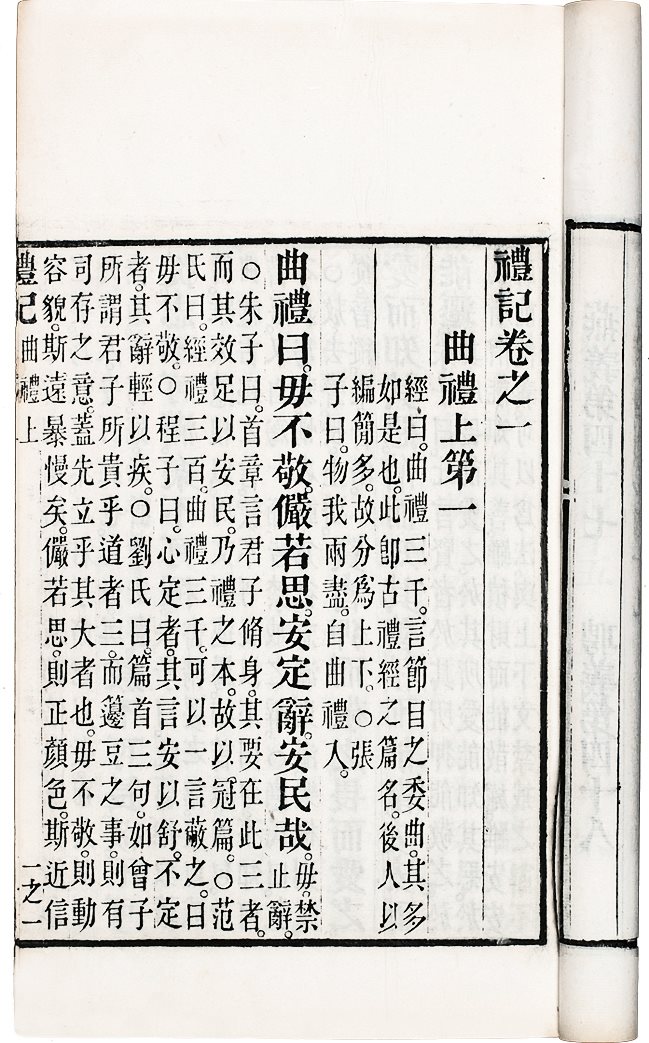 禮記卷之一
曲禮上第一
經曰。曲禮三千。言節目之委曲。其多
如是也。此卽古禮經之篇名。後人以
編簡多。故分爲上下。〇張
子曰。物我兩盡。自曲禮入。
曲禮曰。毋不敬。儼若思。安定辭。安民哉。毋。禁
止辭。
〇朱子曰。首章言君子脩身。其要在此三者。
而其效足以安民。乃禮之本。故以冠篇。〇范
氏曰。經禮三百。曲禮三千。可以一言蔽之。曰
毋不敬。〇程子曰。心定者。其言安以舒。不定
者。其辭輕以疾。〇劉氏曰。篇首三句。如曾子
所謂君子所貴乎道者三。而籩豆之事。則有
司存之意。蓋先立乎其大者也。毋不敬。則動
容貌。斯遠暴慢矣。儼若思。則正顏色。斯近信
禮記 曲禮上 一之一